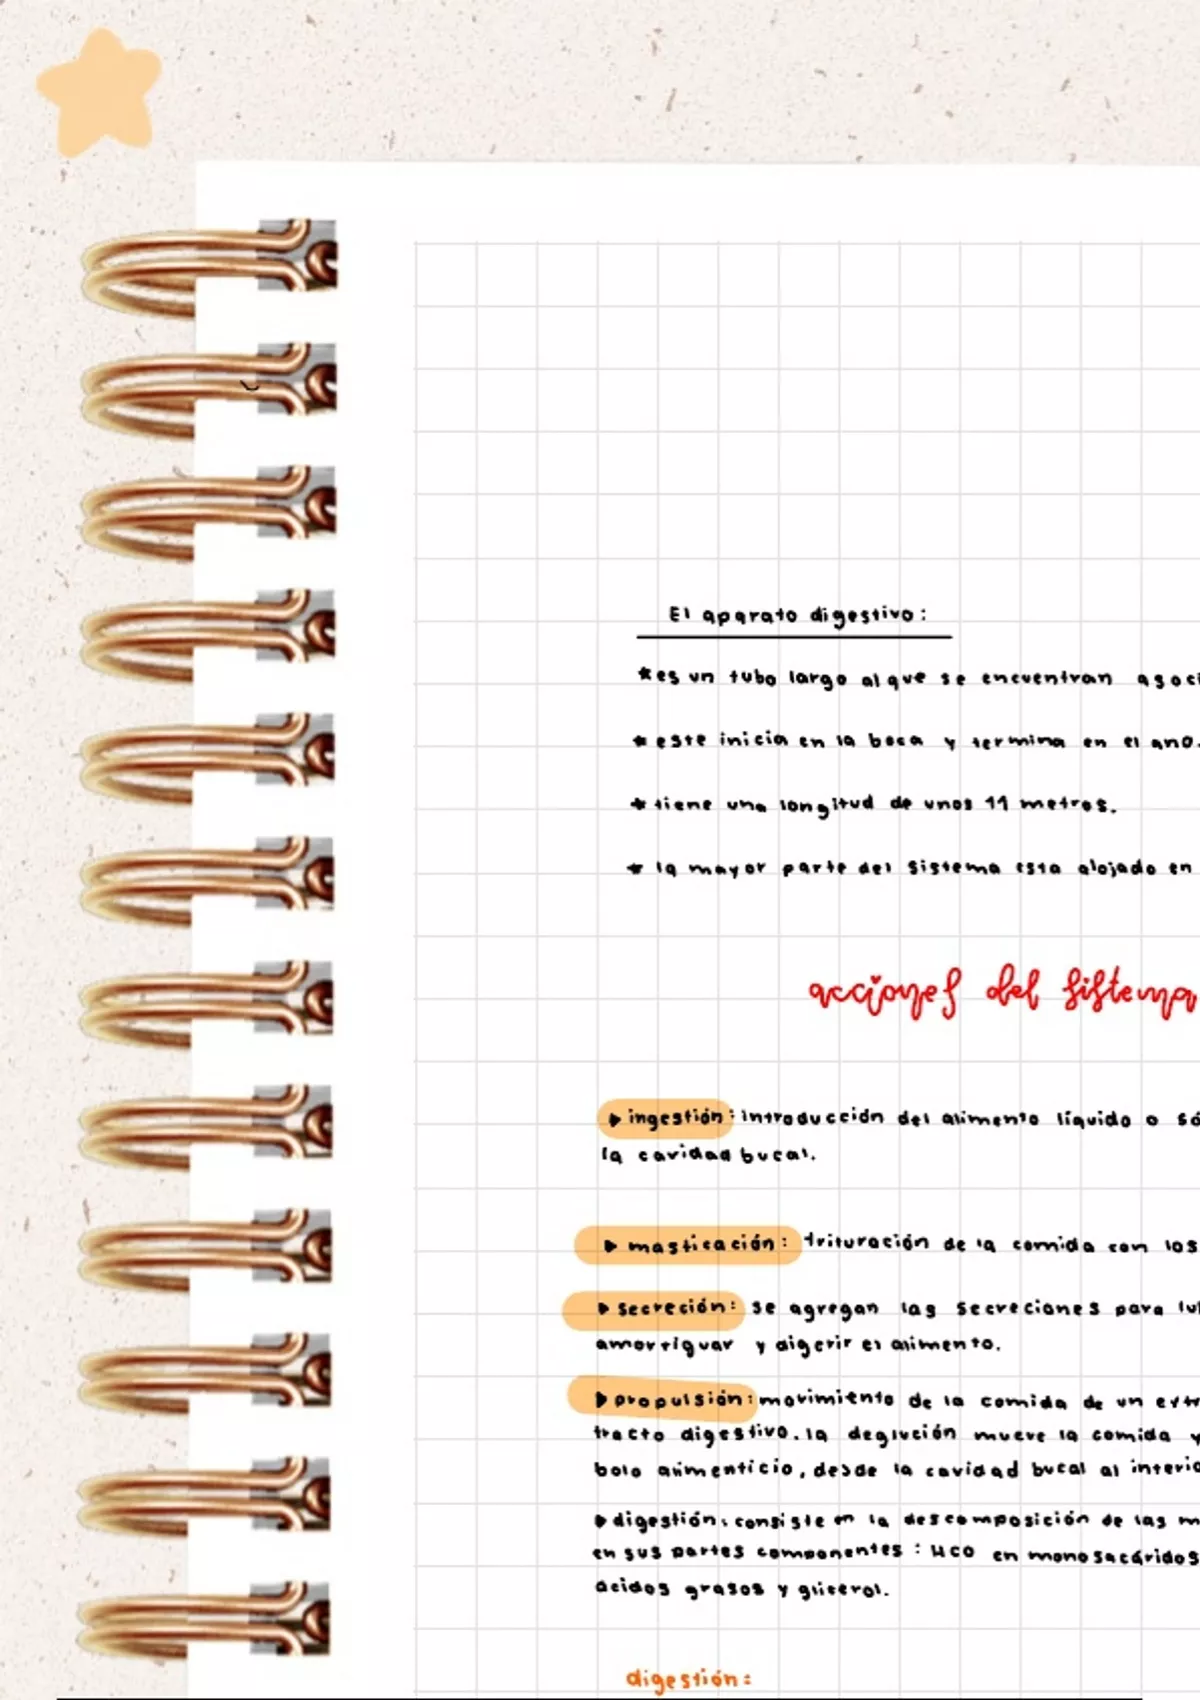 El aparato digestivo:
*es un tubo largo al que se encuentran asoci
*este inicia en la boca y termina en el ano.
*tiene una longitud de unos 11 metros.
*la mayor parte del sistema esta alojado en
acciones del sistema
▶ingestión: introducción del alimento líquido o só
la cavidad bucal.
▶masticación: trituración de la comida con los
▶secreción: se agregan las secreciones para lu
amortiguar y digerir el alimento.
▶propulsión: movimiento de la comida de un extr
tracto digestivo. la deglución mueve la comida y
bolo alimenticio, desde la cavidad bucal al interio
▶digestión: consiste en la descomposición de las m
en sus partes componentes: HCO en monosacáridos
ácidos grasos y glicerol.
digestión: